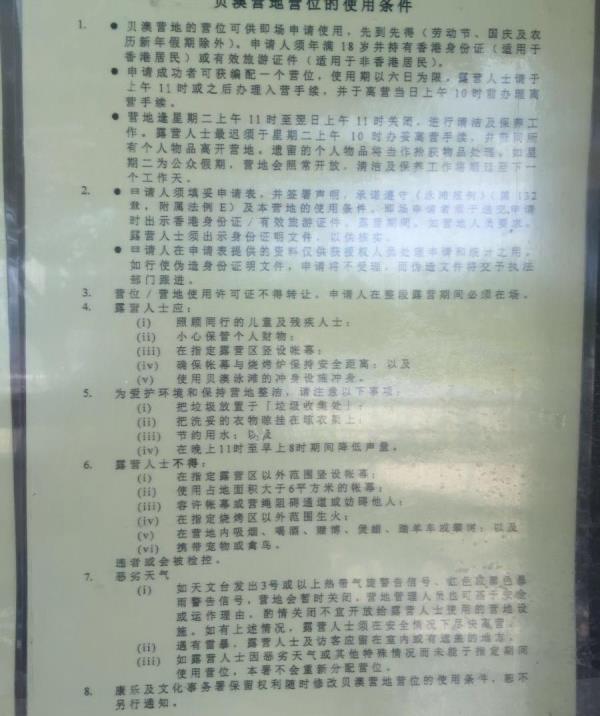 贝澳营地营位的使用条件
1. ● 贝澳营地的营位可供即场申请使用，先到先得（劳动节、国庆及农
历新年假期除外）。申请人须年满 18岁并持有香港身份证（适用于
香港居民）或有效旅游证件（适用于非香港居民）。
● 申请成功者可获编配一个营位，使用期以六日为限，露营人士请于
上午 11时或之后办理入营手续，并于离营当日上午 10时前办理离
营手续。
● 营地逢星期二上午 11时至翌日上午 11时关闭，进行清洁及保养工
作。露营人士最迟须于星期二上午 10时办妥离营手续，并带同所
有个人物品离开营地。遗留的个人物品将当作拾获物品处理。如星
期二为公众假期，营地会照常开放，清洁及保养工作将顺延至下一
个工作天。
2. ● 申请人须填妥申请表，并签署声明，承诺遵守《泳滩规例》（第 132
章，附属法例 E）及本营地的使用条件。即场申请者须于递交申请
时出示香港身份证／有效旅游证件。露营期间，如营地人员要求，
露营人士须出示身份证明文件，以供核实。
● 申请人在申请表提供的资料仅供获授权人员处理申请和统计之用。
如行使伪造身份证明文件，申请将不受理，而伪造文件将交予执法
部门跟进。
3. 营位／营地使用许可证不得转让。申请人在整段露营期间必须在场。
4. 露营人士应：
(i) 照顾同行的儿童及残疾人士；
(ii) 小心保管个人财物；
(iii) 在指定露营区竖设帐幕；
(iv) 确保帐幕与烧烤炉保持安全距离；以及
(v) 使用贝澳泳滩的冲身设施冲身。
5. 为爱护环境和保持营地整洁，请注意以下事项：
(i) 把垃圾放置于「垃圾收集处」；
(ii) 把洗妥的衣物晾挂在晾衣架上；
(iii) 节约用水；以及
(iv) 在晚上11时至早上8时期间降低声量。
6. 露营人士不得：
(i) 在指定露营区以外范围竖设帐幕；
(ii) 使用占地面积大于6平方米的帐幕；
(iii) 容许帐幕或营绳阻碍通道或妨碍他人；
(iv) 在指定烧烤区以外范围生火；
(v) 在营地内吸烟、喝酒、赌博、煲蜡、踏单车或攀树；以及
(vi) 携带宠物或禽鸟。
违者或会被检控。
7. 恶劣天气
(i) 如天文台发出3号或以上热带气旋警告信号、红色或黑色暴
雨警告信号，营地会暂时关闭。营地管理人员也可基于安全
或运作理由，酌情关闭不宜开放给露营人士使用的营地设
施。如有上述情况，露营人士须在安全情况下尽快离营。
(ii) 遇有雷暴，露营人士及访客应留在室内或有遮盖的地方。
(iii) 如露营人士因恶劣天气或其他特殊情况而未能于指定期间
使用营位，本署不会重新分配营位。
8. 康乐及文化事务署保留权利随时修改贝澳营地营位的使用条件，恕不
另行通知。